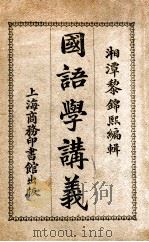 湘潭黎錦熙編輯
國語學講義
上海商務印書館出版
www.toopoo.com